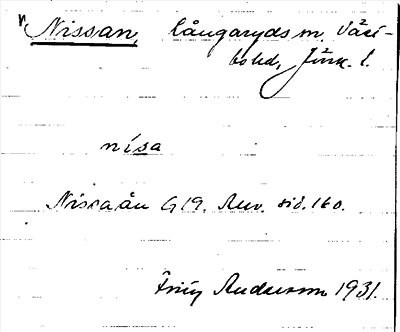 Nissan, Långaryds sn, Väst-
bo hd, Jönk. l.
nísa
Nissaån G 19. Anv. sid. 160.
Andersson 1931.